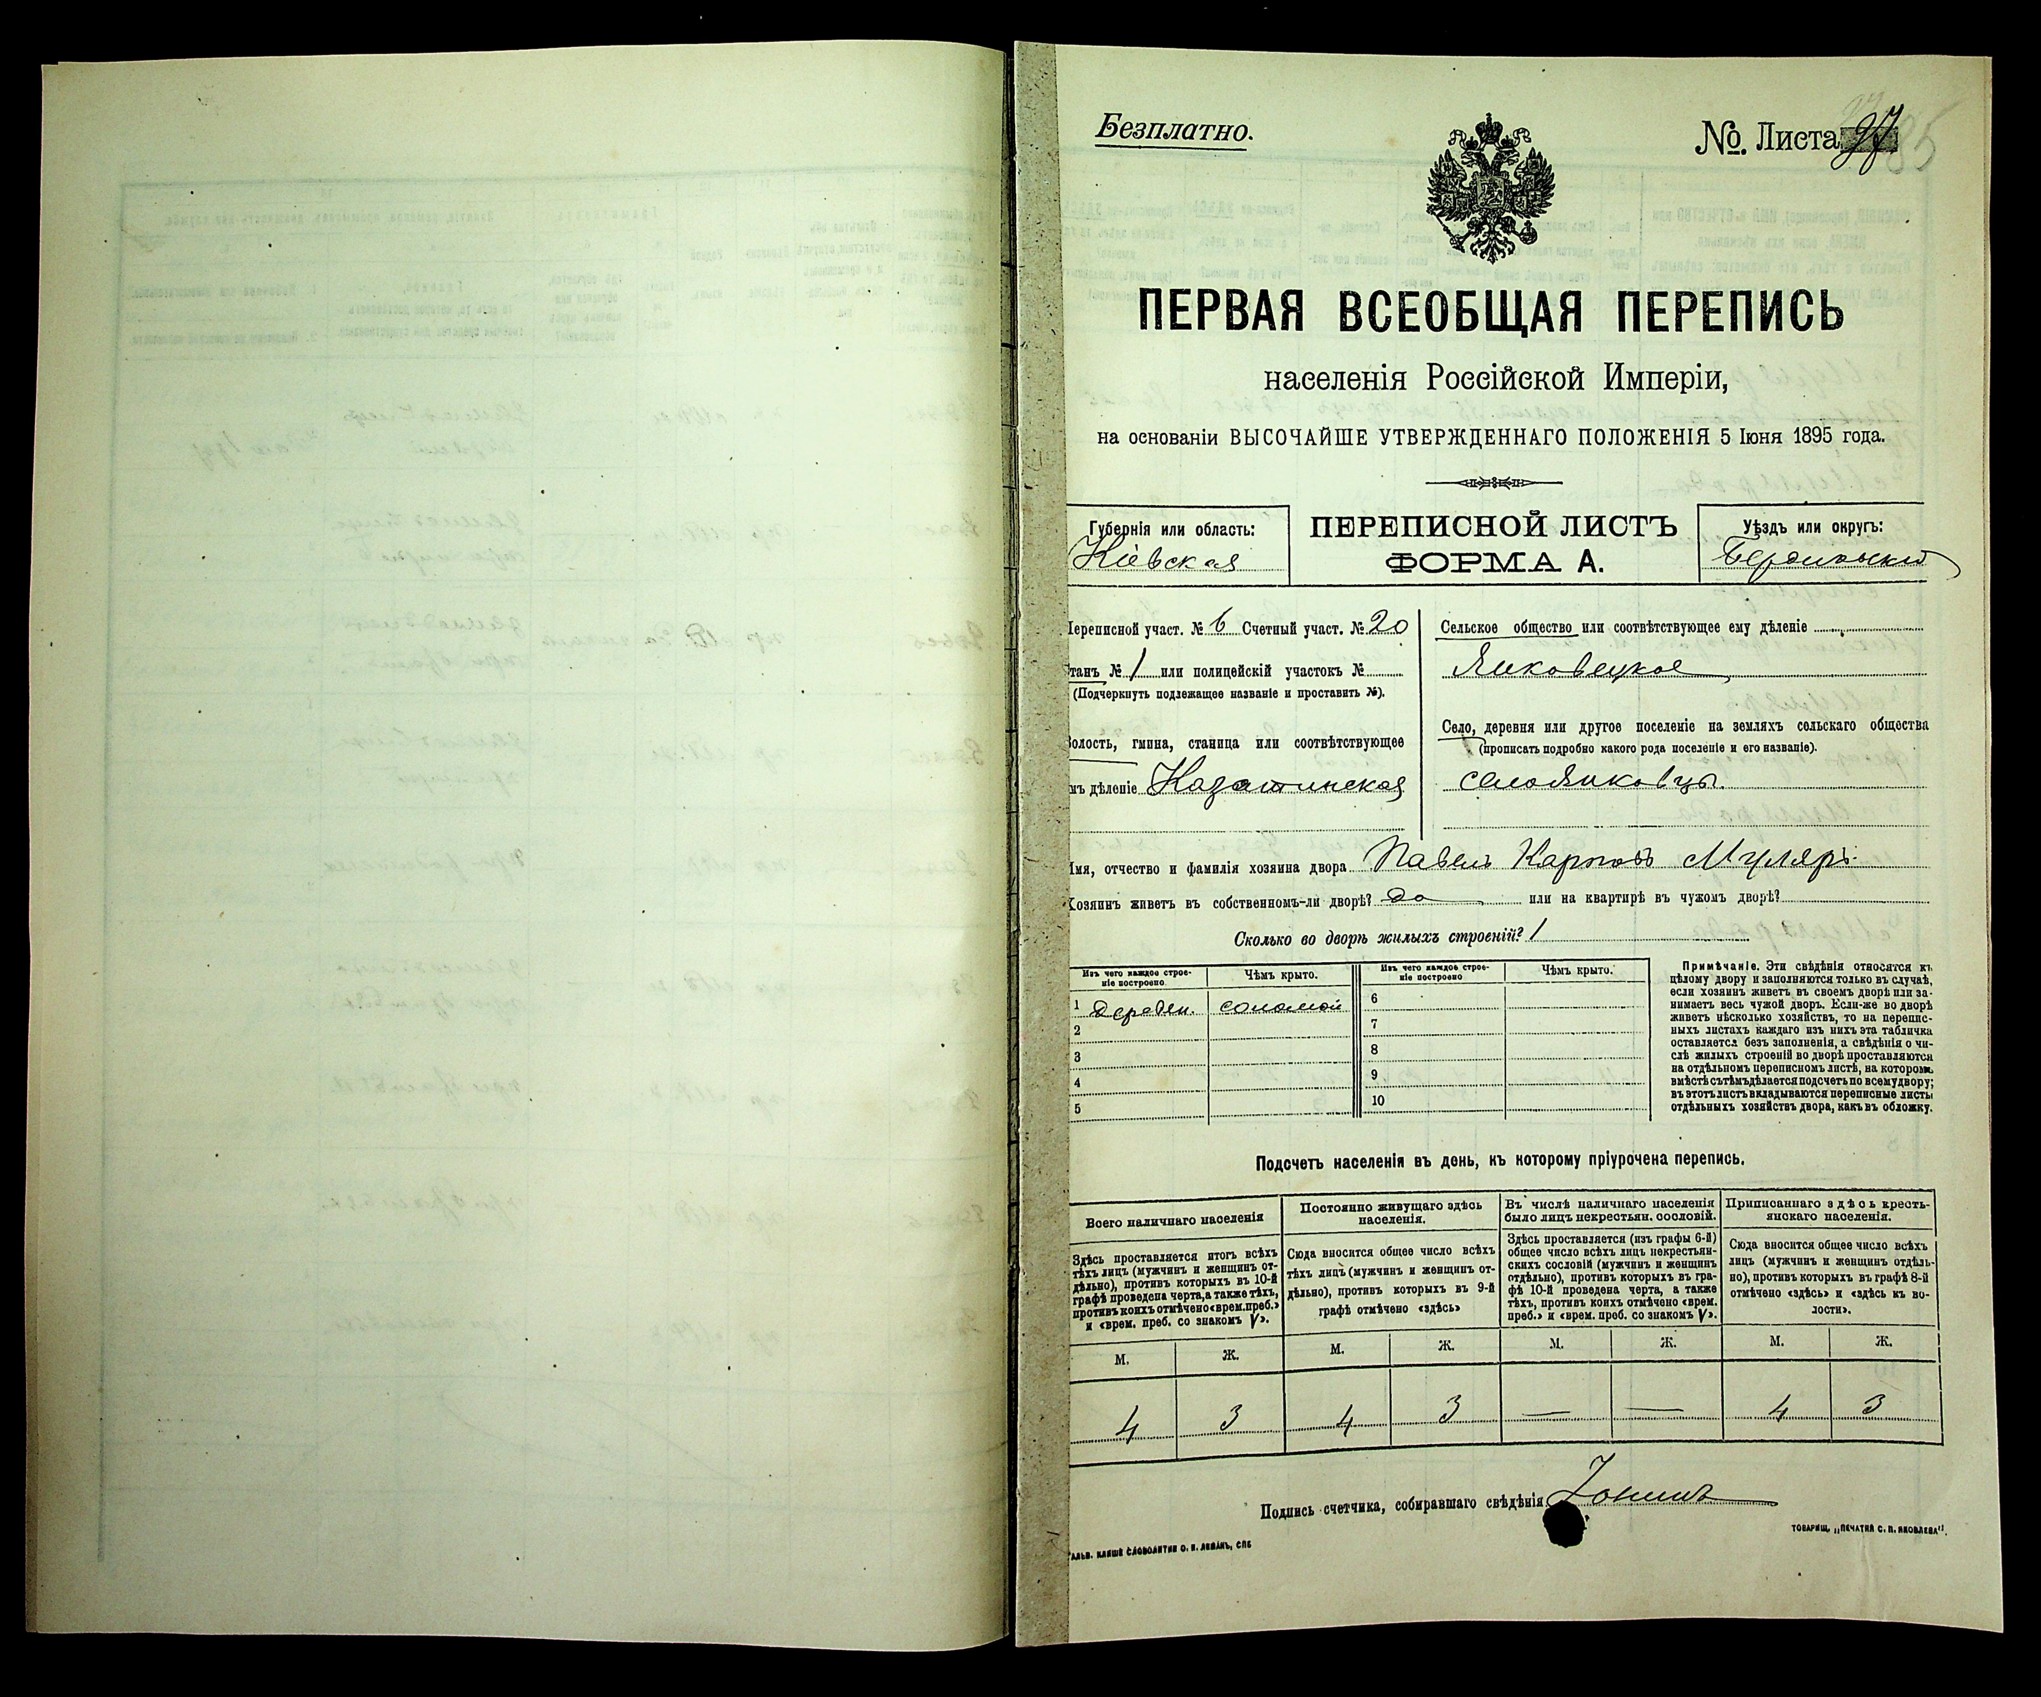 Безплатно.
№. Листа 97
85
ПЕРВАЯ ВСЕОБЩАЯ ПЕРЕПИСЬ
населенія Россійской Имперіи,
на основаніи ВЫСОЧАЙШЕ УТВЕРЖДЕННАГО ПОЛОЖЕНІЯ 5 Іюня 1895 года.
Губернія или область:
Кіевская
ПЕРЕПИСНОЙ ЛИСТЪ
ФОРМА А.
Уѣздъ или округъ:
Бердичевскій
Переписной участ. № 6 Счетный участ. № 20
Станъ № 1 или полицейскій участокъ №
(Подчеркнуть подлежащее названіе и проставить №).
Волость, гмина, станица или соотвѣтствующее
имъ дѣленіе Казатинская
Сельское общество или соотвѣтствующее ему дѣленіе
Янковецкое
Село, деревня или другое поселеніе на земляхъ сельскаго общества
(прописать подробно какого рода поселеніе и его названіе).
село Янковцы.
Имя, отчество и фамилія хозяина двора Павелъ Карповъ Муляръ
Хозяинъ живетъ въ собственномъ-ли дворѣ? да или на квартирѣ въ чужомъ дворѣ?
Сколько во дворѣ жилыхъ строеній? 1
Изъ чего каждое строе-
ніе построено
Чѣмъ крыто.
Изъ чего каждое строе-
ніе построено
Чѣмъ крыто.
1 деревян. соломой
2
3
4
5
6
7
8
9
10
Примѣчаніе. Эти свѣдѣнія относятся къ
цѣлому двору и заполняются только въ случаѣ,
если хозяинъ живетъ въ своемъ дворѣ или за-
нимаетъ весь чужой дворъ. Если-же во дворѣ
живетъ нѣсколько хозяйствъ, то на перепис-
ныхъ листахъ каждаго изъ нихъ эта табличка
оставляется безъ заполненія, а свѣдѣнія о чи-
слѣ жилыхъ строеній во дворѣ проставляются
на отдѣльномъ переписномъ листѣ, на которомъ
вмѣстѣ съ тѣмъ дѣлается подсчетъ по всему двору;
въ этотъ листъ вкладываются переписные листы
отдѣльныхъ хозяйствъ двора, какъ въ обложку.
Подсчетъ населенія въ день, къ которому пріурочена перепись.
Всего наличнаго населенія
Постоянно живущаго здѣсь
населенія.
Въ числѣ наличнаго населенія
было лицъ некрестьян. сословій.
Приписаннаго здѣсь кресть-
янскаго населенія.
Здѣсь проставляется итогъ всѣхъ
тѣхъ лицъ (мужчинъ и женщинъ от-
дѣльно), противъ которыхъ въ 10-й
графѣ проведена черта, а также тѣхъ,
противъ коихъ отмѣчено «врем. преб.»
и «врем. преб. со знакомъ V».
Сюда вносится общее число всѣхъ
тѣхъ лицъ (мужчинъ и женщинъ от-
дѣльно), противъ которыхъ въ 9-й
графѣ отмѣчено «здѣсь»
Здѣсь проставляется (изъ графы 6-й)
общее число всѣхъ лицъ некрестьян-
скихъ сословій (мужчинъ и женщинъ
отдѣльно), противъ которыхъ въ гра-
фѣ 10-й проведена черта, а также
тѣхъ, противъ коихъ отмѣчено «врем.
преб.» и «врем. преб. со знакомъ V».
Сюда вносится общее число всѣхъ
лицъ (мужчинъ и женщинъ отдѣль-
но), противъ которыхъ въ графѣ 8-й
отмѣчено «здѣсь» и «здѣсь къ во-
лости».
М. Ж. М. Ж. М. Ж. М. Ж.
4 3 4 3 — — 4 3
Подпись счетчика, собиравшаго свѣдѣнія
ГАЛЬВ. КЛИШЕ СЛОВОЛИТНИ О. И. ЛЕМАНЪ, СПБ
ТОВАРИЩ. „ПЕЧАТНЯ С. П. ЯКОВЛЕВА".